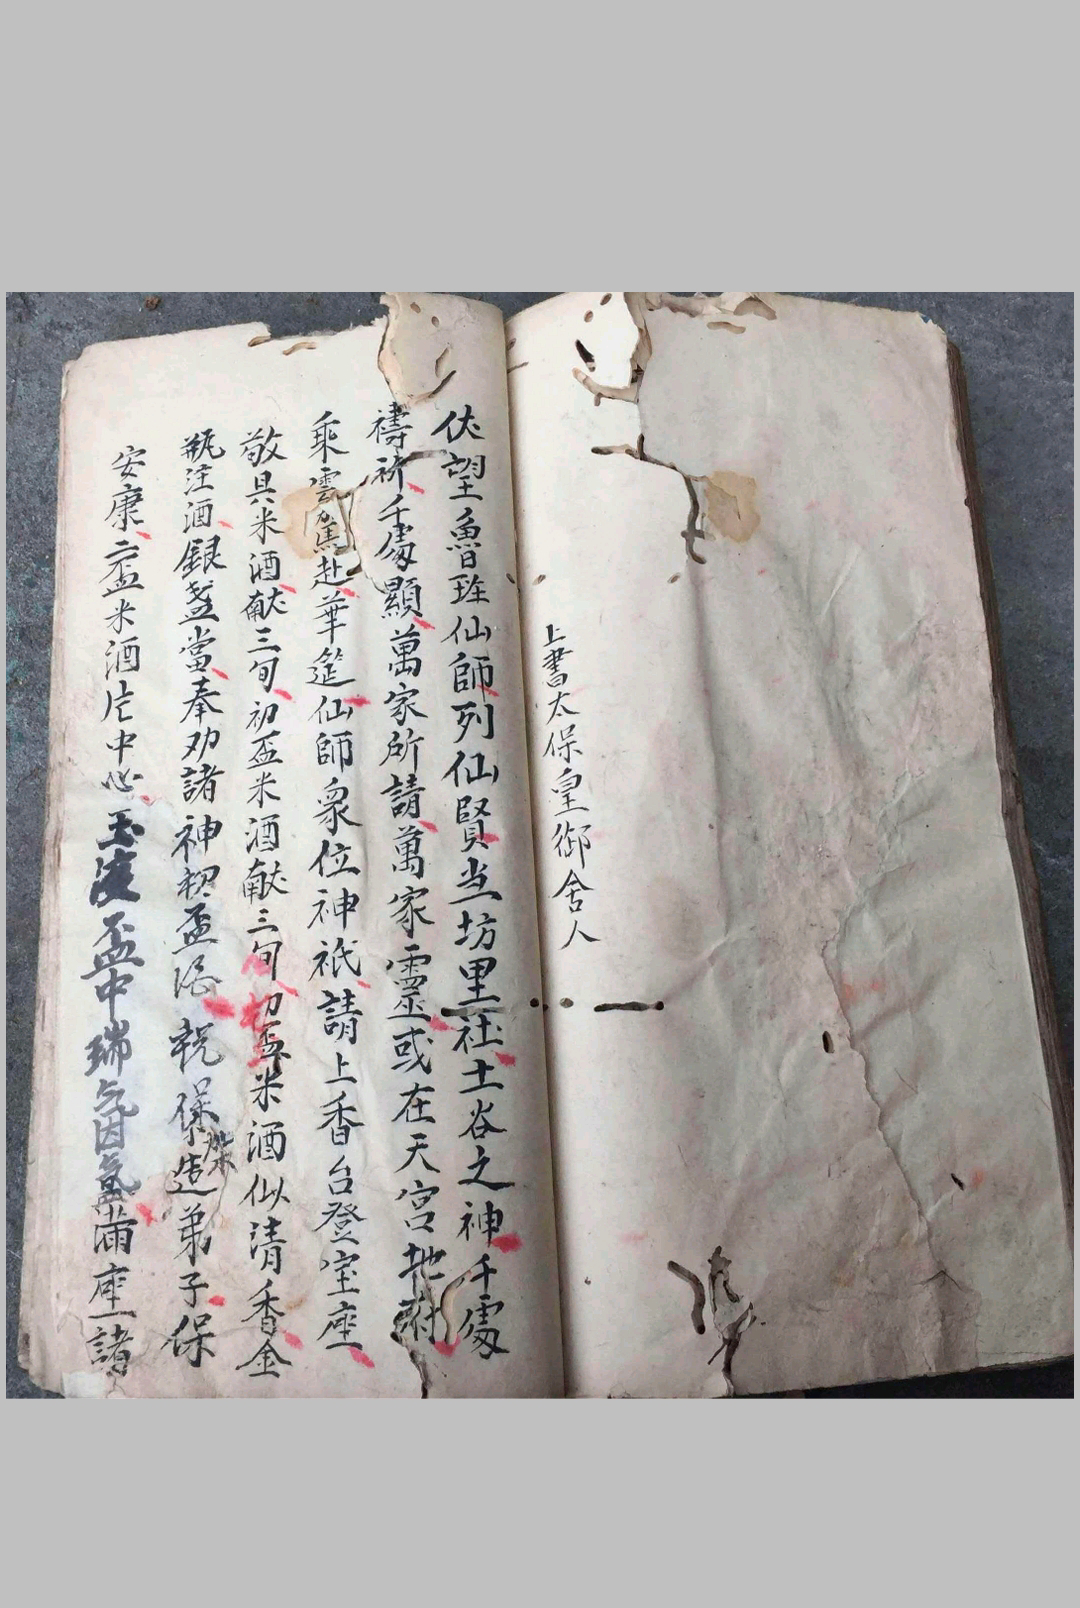 上書太保皇御舍人
伏望魯班仙師列仙賢当坊里社土谷之神千處
禱祈千處顯萬家所請萬家靈或在天宮地府
乘雲駕赴華筵仙師衆位神祇請上香台登宝座
敬具米酒献三旬初盃米酒献三旬初盃米酒似清香金
瓶注酒銀盞當奉劝諸神初盃酒祝保造弟子保
安康二盃米酒片中心玉液盃中瑞气因氤滿座諸